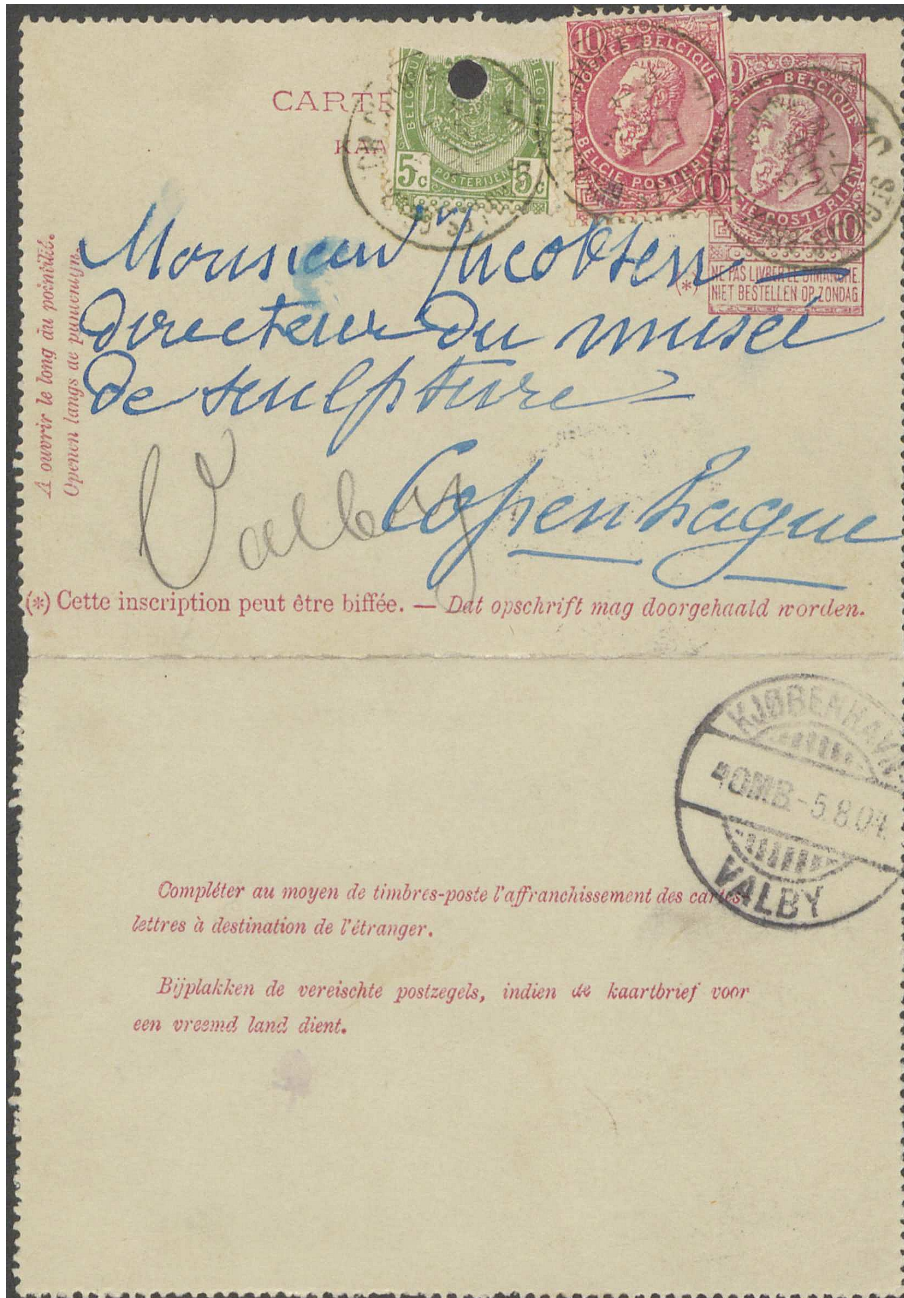 CARTE
KAA
BELGIQUE
BELGIË
POSTERIJEN
5c 5c
10
POSTES BELGIQUE
BELGIE POSTERIJEN
10
POSTES BELGIQUE
POSTERIJEN
10
NE PAS LIVRER LE DIMANCHE.
NIET BESTELLEN OP ZONDAG
(*)
A ouvrir le long du pointillé.
Openen langs de punctlijn.
Monsieur Jacobsen
directeur du musée
de sculpture
Valby
Copenhague
(*) Cette inscription peut être biffée. — Dat opschrift mag doorgehaald worden.
KJØBENHAVN
40MB.-5.8.04.
VALBY
Compléter au moyen de timbres-poste l'affranchissement des cartes-
lettres à destination de l'étranger.
Bijplakken de vereischte postzegels, indien de kaartbrief voor
een vreemd land dient.